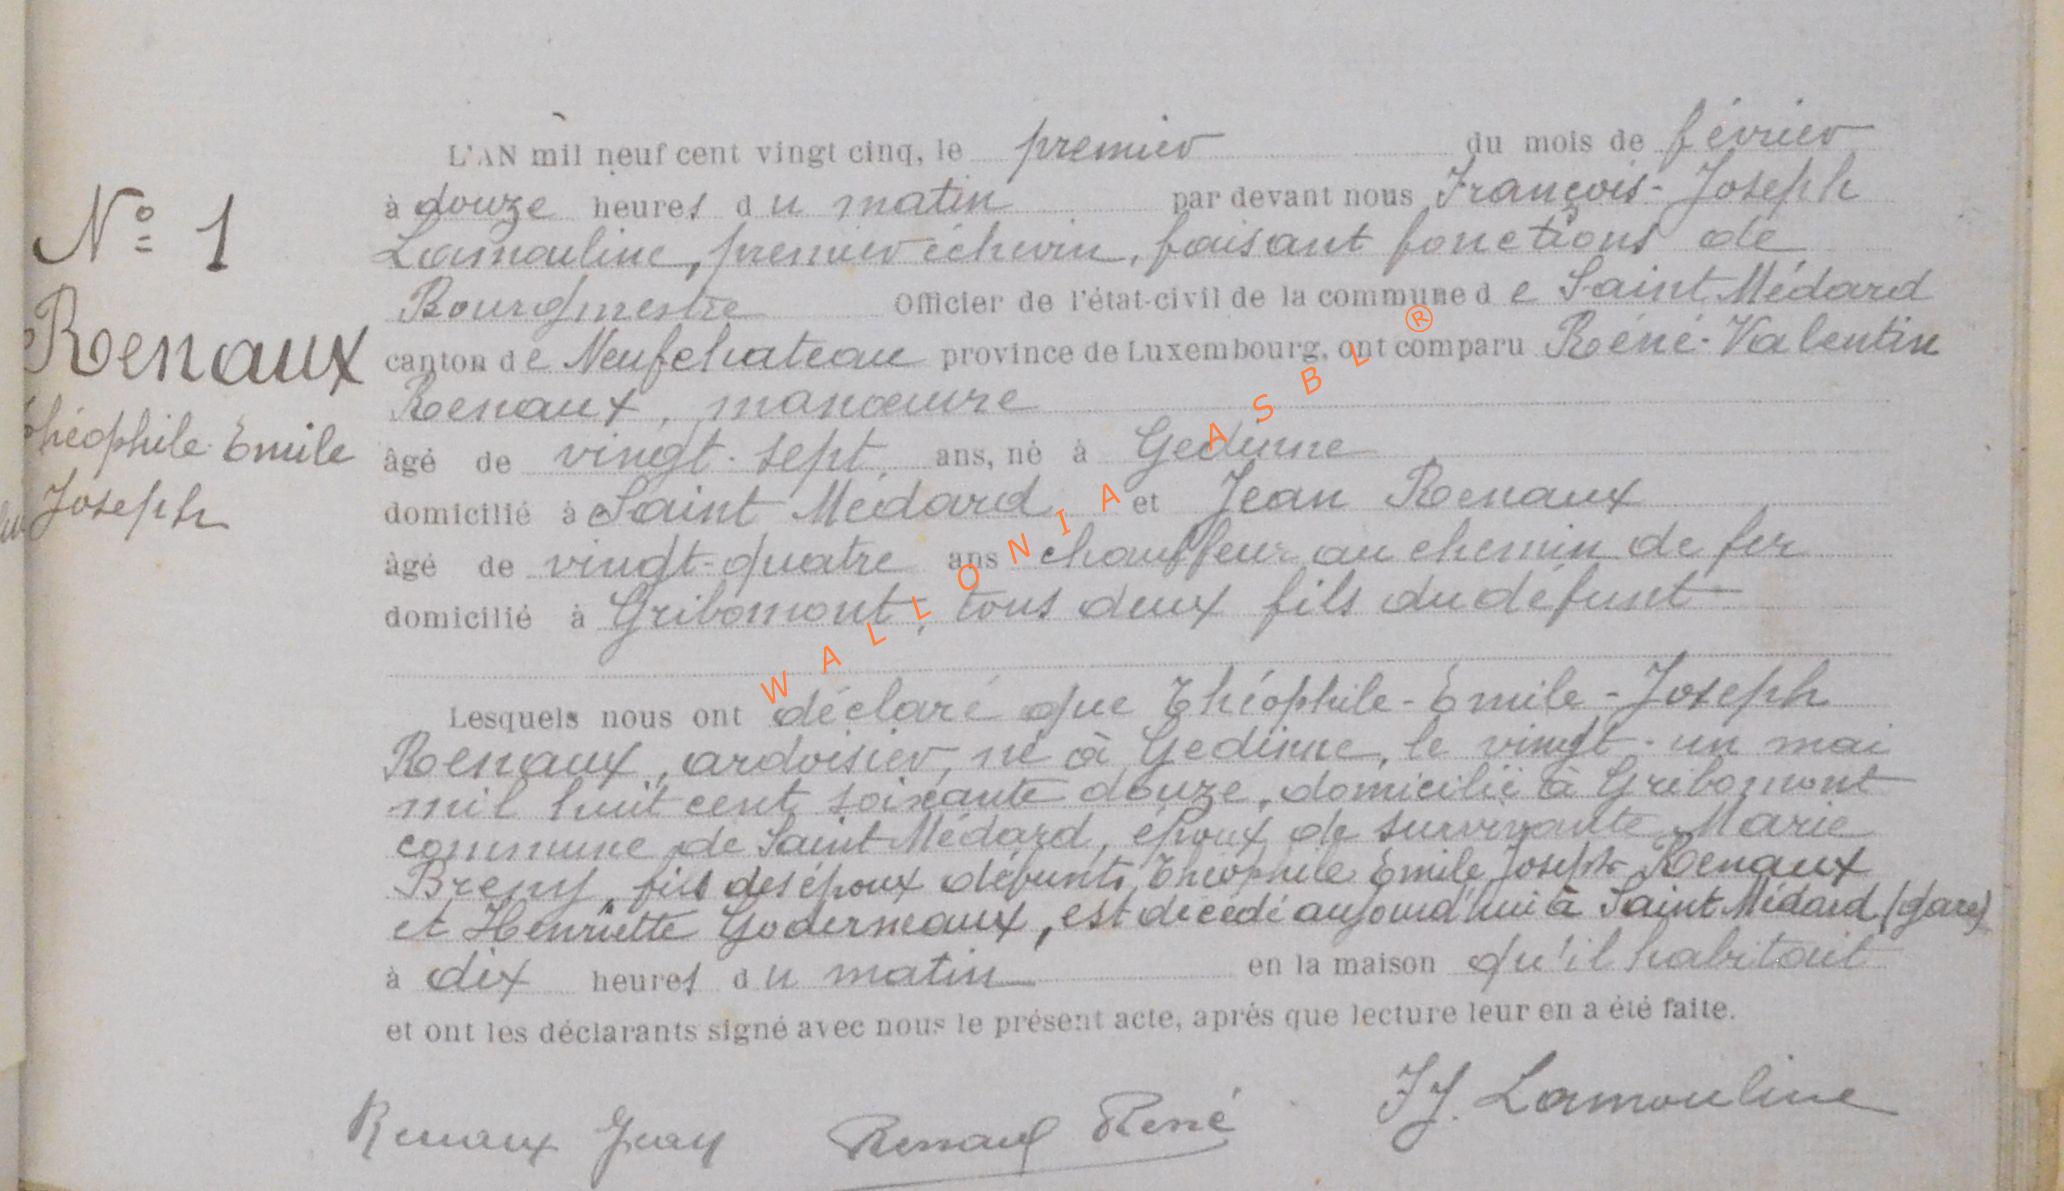 N° 1
Renaux
Théophile Emile
Joseph
L'AN mil neuf cent vingt cinq, le premier du mois de février
à douze heures du matin par devant nous François-Joseph
Lamouline, premier échevin, faisant fonctions de
Bourgmestre Officier de l'état-civil de la commune de Saint Médard
canton de Neufchateau province de Luxembourg, ont comparu Réné-Valentin
Renaux, manœuvre
âgé de vingt-sept ans, né à Gedinne
domicilié à Saint Médard et Jean Renaux
âgé de vingt-quatre ans chauffeur au chemin de fer
domicilié à Gribomont, tous deux fils du défunt
Lesquels nous ont déclaré que Théophile-Emile-Joseph
Renaux, ardoisier, né à Gedinne, le vingt-un mai
mil huit cent soixante douze, domicilié à Gribomont
commune de Saint Médard, époux de survivante Marie
fils des époux défunts Théophile Emile Joseph Renaux
et Henriette Goderneaux, est décédé aujourd'hui à Saint Médard (gare)
à dix heures du matin en la maison qu'il habitait
et ont les déclarants signé avec nous le présent acte, après que lecture leur en a été faite.
Renaux Jean Renaux René FJ. Lamouline
WALLONIA ASBL ®